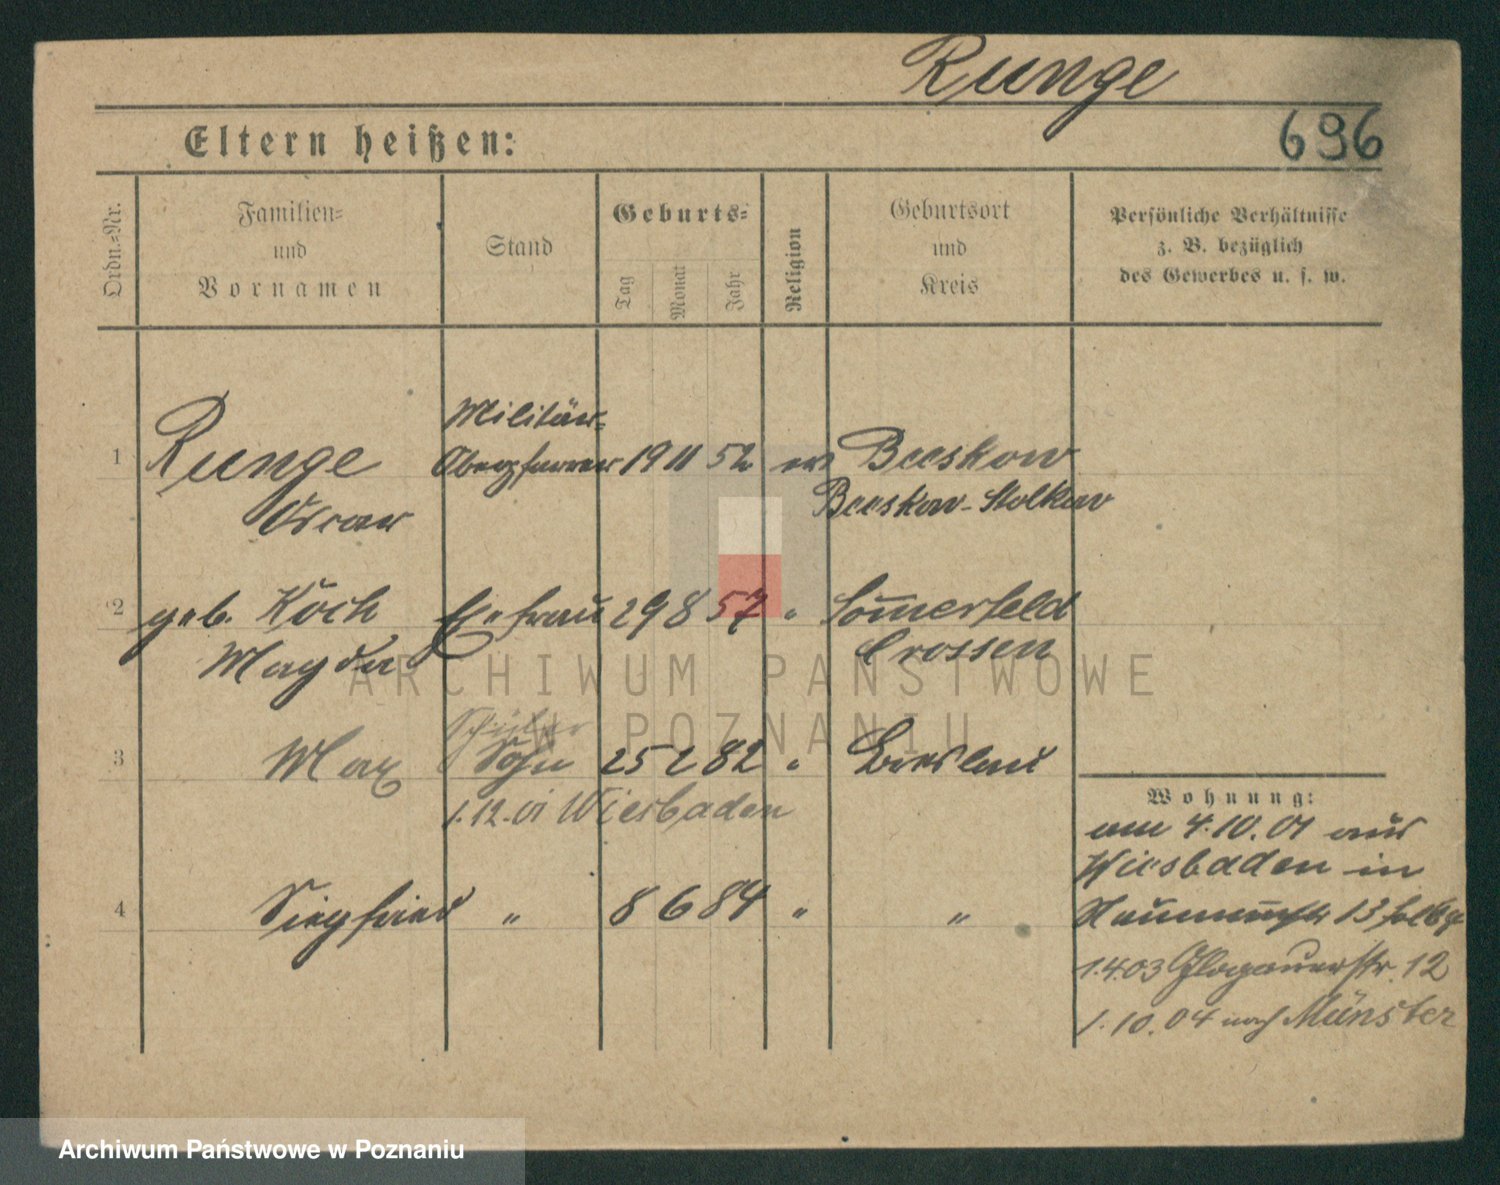 Runge
696
Eltern heißen:
Ordn.=Nr.
Familien=
und
Vornamen
Stand
Geburts=
Tag
Monat
Jahr
Religion
Geburtsort
und
Kreis
Persönliche Verhältnisse
z. B. bezüglich
des Gewerbes u. s. w.
Militär=
1 Runge Oberpfarrer 19 11 52 ev Beeskow
Oscar Beeskow-Storkow
2 geb. Koch Ehefrau 29 8 57 " Sommerfeld
Magda Crossen
Schüler
3 Max Sohn 25 2 82 " Breslau
1.12.01 Wiesbaden
4 Siegfried " 8 6 84 " "
Wohnung:
am 4.10.01 aus
Wiesbaden in
13
1.4.03 Glogauerstr. 12
1.10.04 nach Münster
ARCHIWUM PAŃSTWOWE
W POZNANIU
Archiwum Państwowe w Poznaniu